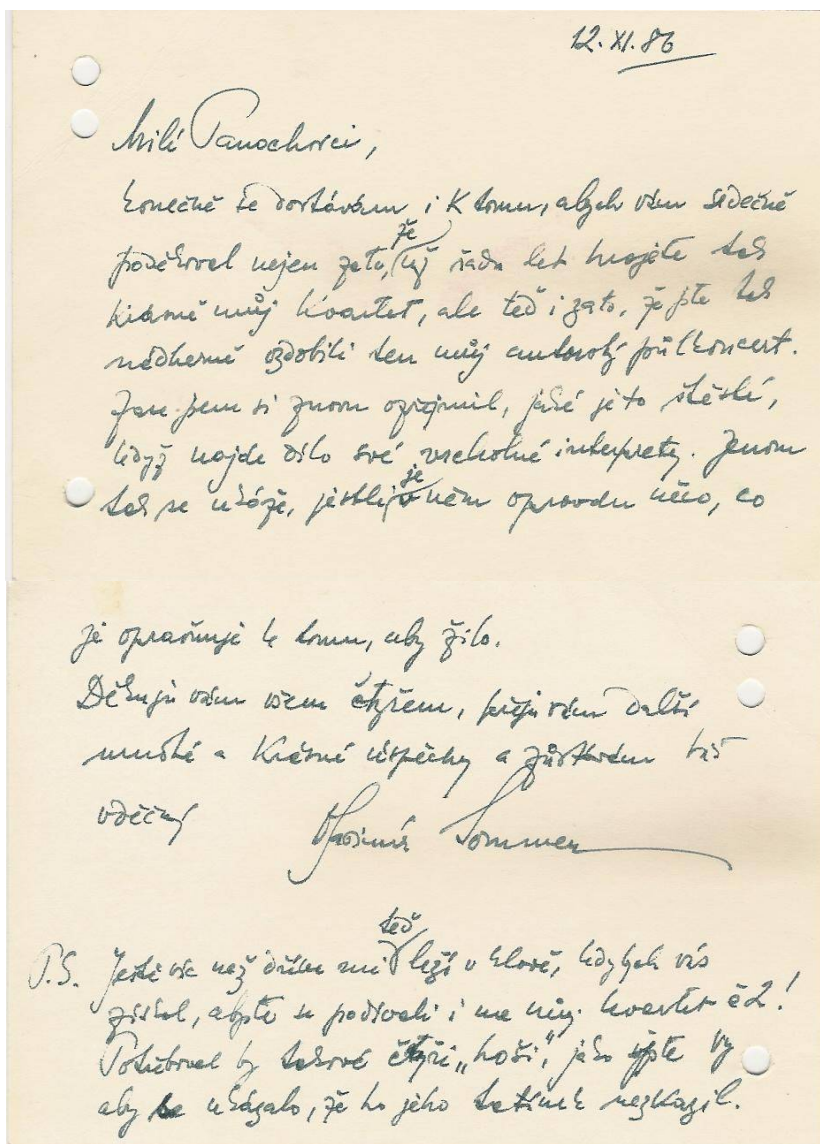 12. XI. 86
Milí Panochovci,
konečně se dostávám i k tomu, abych vám srdečně
poděkoval nejen zato, že už řadu let hrajete tak
krásně můj kvartet, ale teď i zato, že jste tak
nádherně ozdobili ten můj autorský půlkoncert.
Jsem si znovu ozřejmil, jaké je to štěstí,
když najde dílo své vrcholné interprety. Jenom
tak se ukáže, jestli je v něm opravdu něco, co
je opravňuje k tomu, aby žilo.
Děkuji vám všem čtyřem, přeju vám další
mnohé a krásné úspěchy a zůstávám váš
vděčný Vladimír Sommer
P.S. Ještě víc než dříve mi teď leží v hlavě, kdybych vás
získal, abyste se podívali i na můj kvartet č 2!
Potřeboval by takové čtyři „hoši", jako jste vy
aby se ukázalo, že ho jeho tatínek nezkazil.